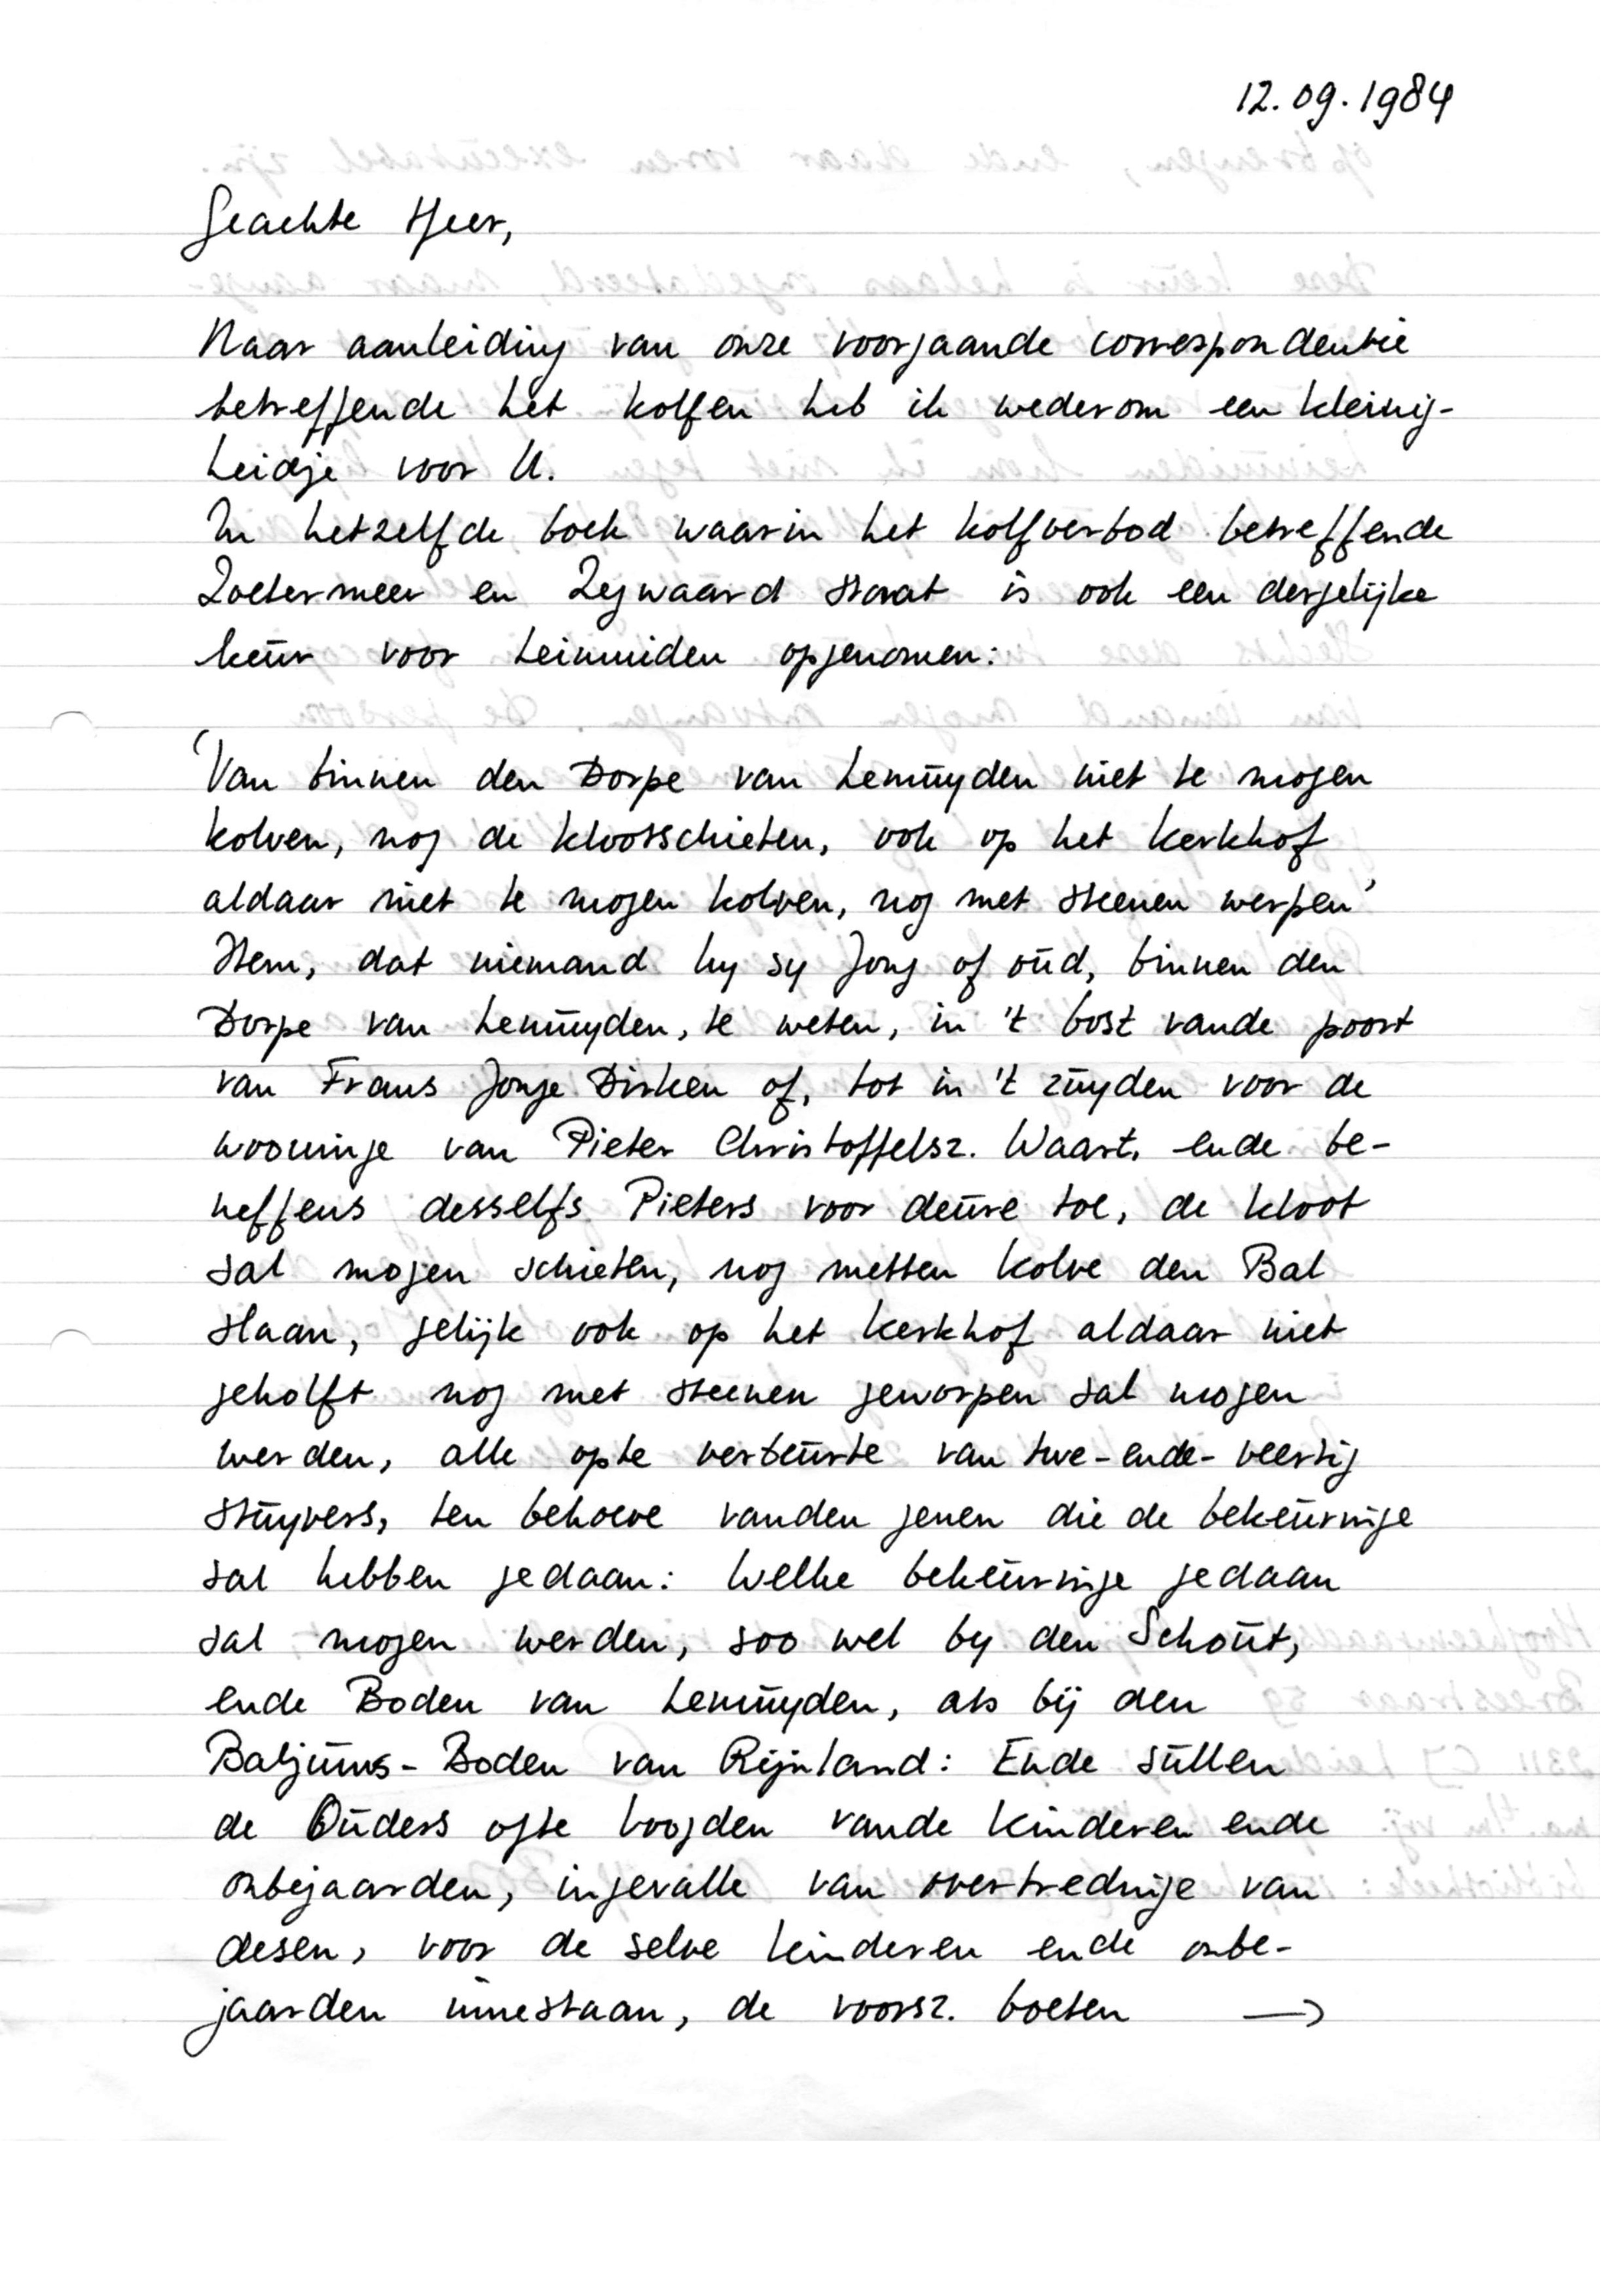 12.09.1984
Geachte Heer,
Naar aanleiding van onze voorgaande correspondentie
betreffende het kolfen heb ik wederom een kleinig-
heidje voor U.
In hetzelfde boek waarin het kolfverbod betreffende
Zoetermeer en Zegwaard staat is ook een dergelijke
keur voor Leimuiden opgenomen:
'Van binnen den Dorpe van Lemuyden niet te mogen
kolven, nog de klootschieten, ook op het kerkhof
aldaar niet te mogen kolven, nog met steenen werpen'
Item, dat niemand hy sy Jong of oud, binnen den
Dorpe van Lemuyden, te weten, in 't Oost vande poort
van Frans Jonge Dirken of, tot in 't zuyden voor de
wooninge van Pieter Christoffelsz. Waart, ende be-
neffens desselfs Pieters voor deure toe, de kloot
sal mogen schieten, nog metten kolve den Bal
slaan, gelijk ook op het kerkhof aldaar niet
gekolft nog met steenen geworpen sal mogen
werden, alle opte verbeurte van twe-ende-veertig
stuyvers, ten behoeve vanden genen die de bekeuringe
sal hebben gedaan: Welke bekeuringe gedaan
sal mogen werden, soo wel by den Schout,
ende Boden van Lemuyden, als bij den
Baljuws-Boden van Rijnland: Ende sullen
de Ouders ofte Voogden vande kinderen ende
onbejaarden, ingevalle van overtredinge van
desen, voor de selve kinderen ende onbe-
jaarden innestaan, de voorsz. boeten →